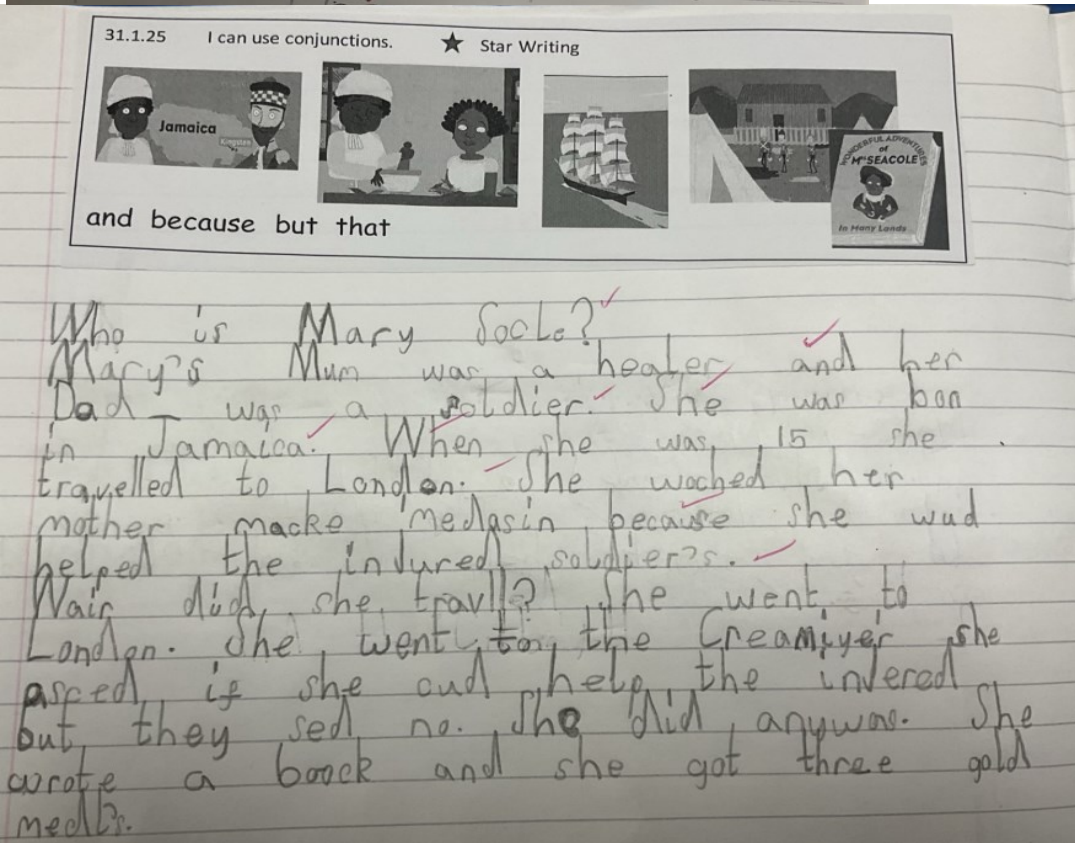 31.1.25 I can use conjunctions. ★ Star Writing
Jamaica
Kingston
WONDERFUL ADVENTURES
of
Mrs SEACOLE
In Many Lands
and because but that
Who is Mary Socle?
Mary's Mum was a healer and her
Dad was a soldier. She was bon
in Jamaica. When she was 15 she
travelled to London. She woched her
mother macke medasin because she wud
helped the injured soldier's.
Wair did she travll? She went to
London. She went to the Creamiyer she
asced if she cud help the injered
but they sed no. She did anyway. She
wrote a boock and she got three gold
medl's.